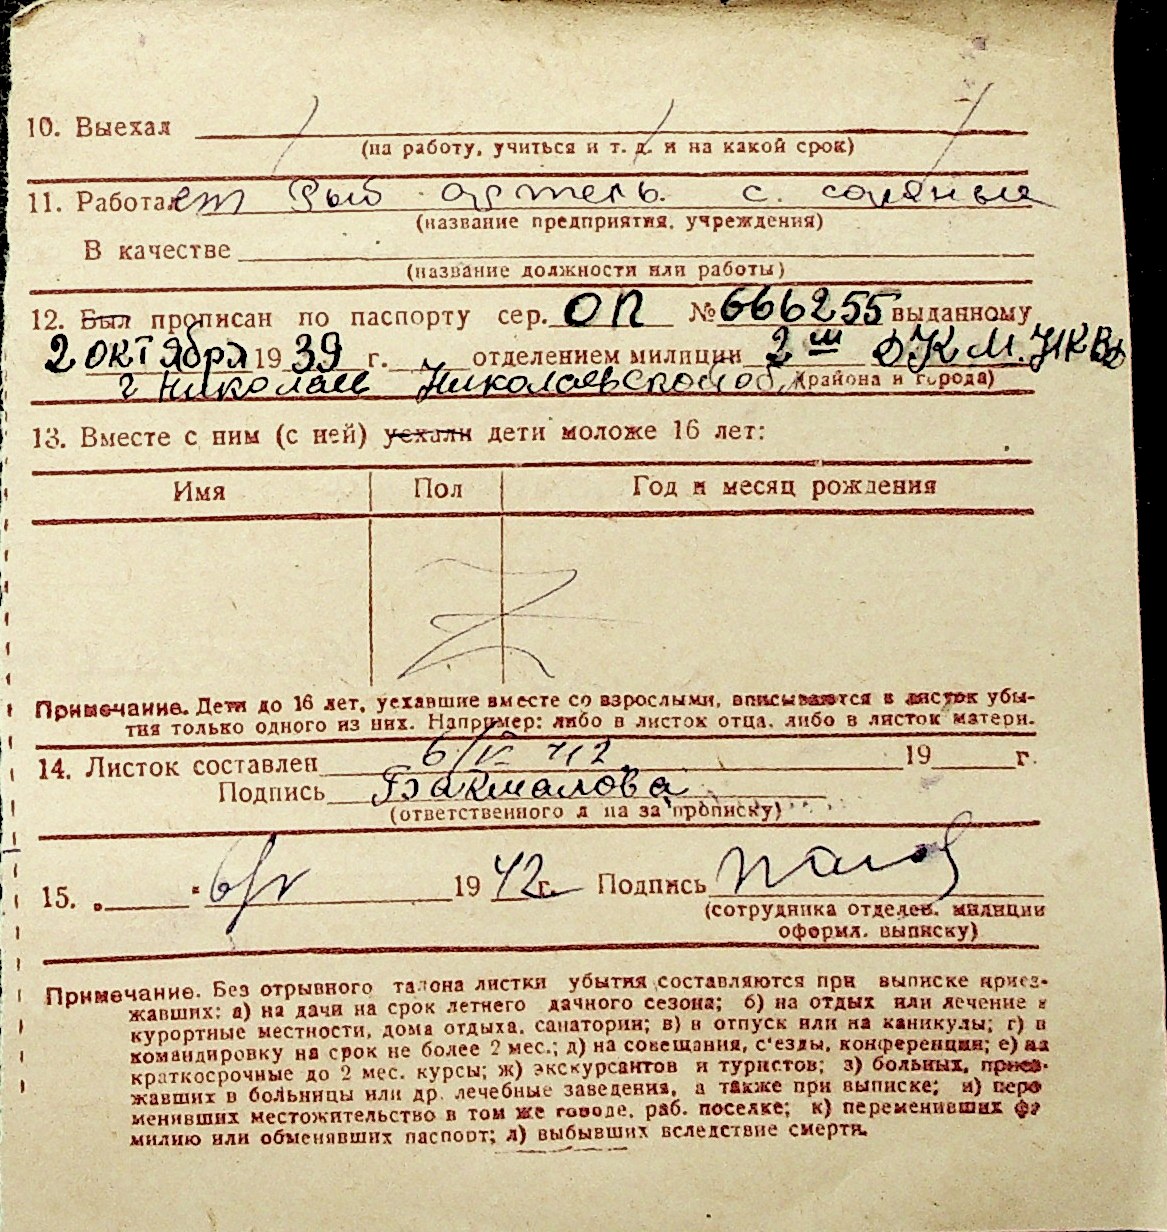 10. Выехал
(на работу, учиться и т. д. и на какой срок)
11. Работает Рыб артель. с. соляные
(название предприятия, учреждения)
В качестве
(название должности или работы)
12. Был прописан по паспорту сер. ОП № 666255 выданному
2 октября 1939 г. отделением милиции 2 м О/К М. НКВД
г Николаев Николаевской обл (района и города)
13. Вместе с ним (с ней) уехали дети моложе 16 лет:
Имя Пол Год и месяц рождения
Примечание. Дети до 16 лет, уехавшие вместе со взрослыми, вписываются в листок убы-
тия только одного из них. Например: либо в листок отца, либо в листок матери.
14. Листок составлен 6/V 42 19 г.
Подпись Бакмалова
(ответственного л на за прописку)
15. „ " 6/V 1942 г. Подпись
(сотрудника отделен. милиции
оформл. выписку)
Примечание. Без отрывного талона листки убытия составляются при выписке приез-
жавших: а) на дачи на срок летнего дачного сезона; б) на отдых или лечение в
курортные местности, дома отдыха, санатории; в) в отпуск или на каникулы; г) в
командировку на срок не более 2 мес.; д) на совещания, с'езды, конференции; е) на
краткосрочные до 2 мес. курсы; ж) экскурсантов и туристов; з) больных, приез-
жавших в больницы или др. лечебные заведения, а также при выписке; и) пере
менивших местожительство в том же городе, раб. поселке; к) переменивших фа
милию или обменявших паспорт; л) выбывших вследствие смерти.